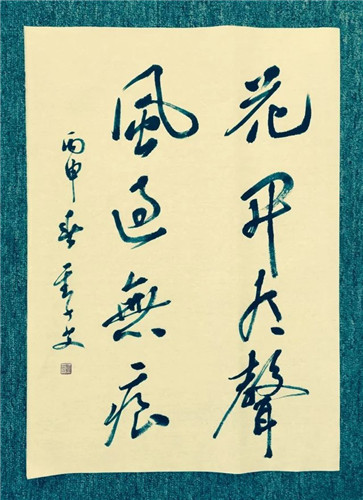 花开有聲
風過無痕
丙申春